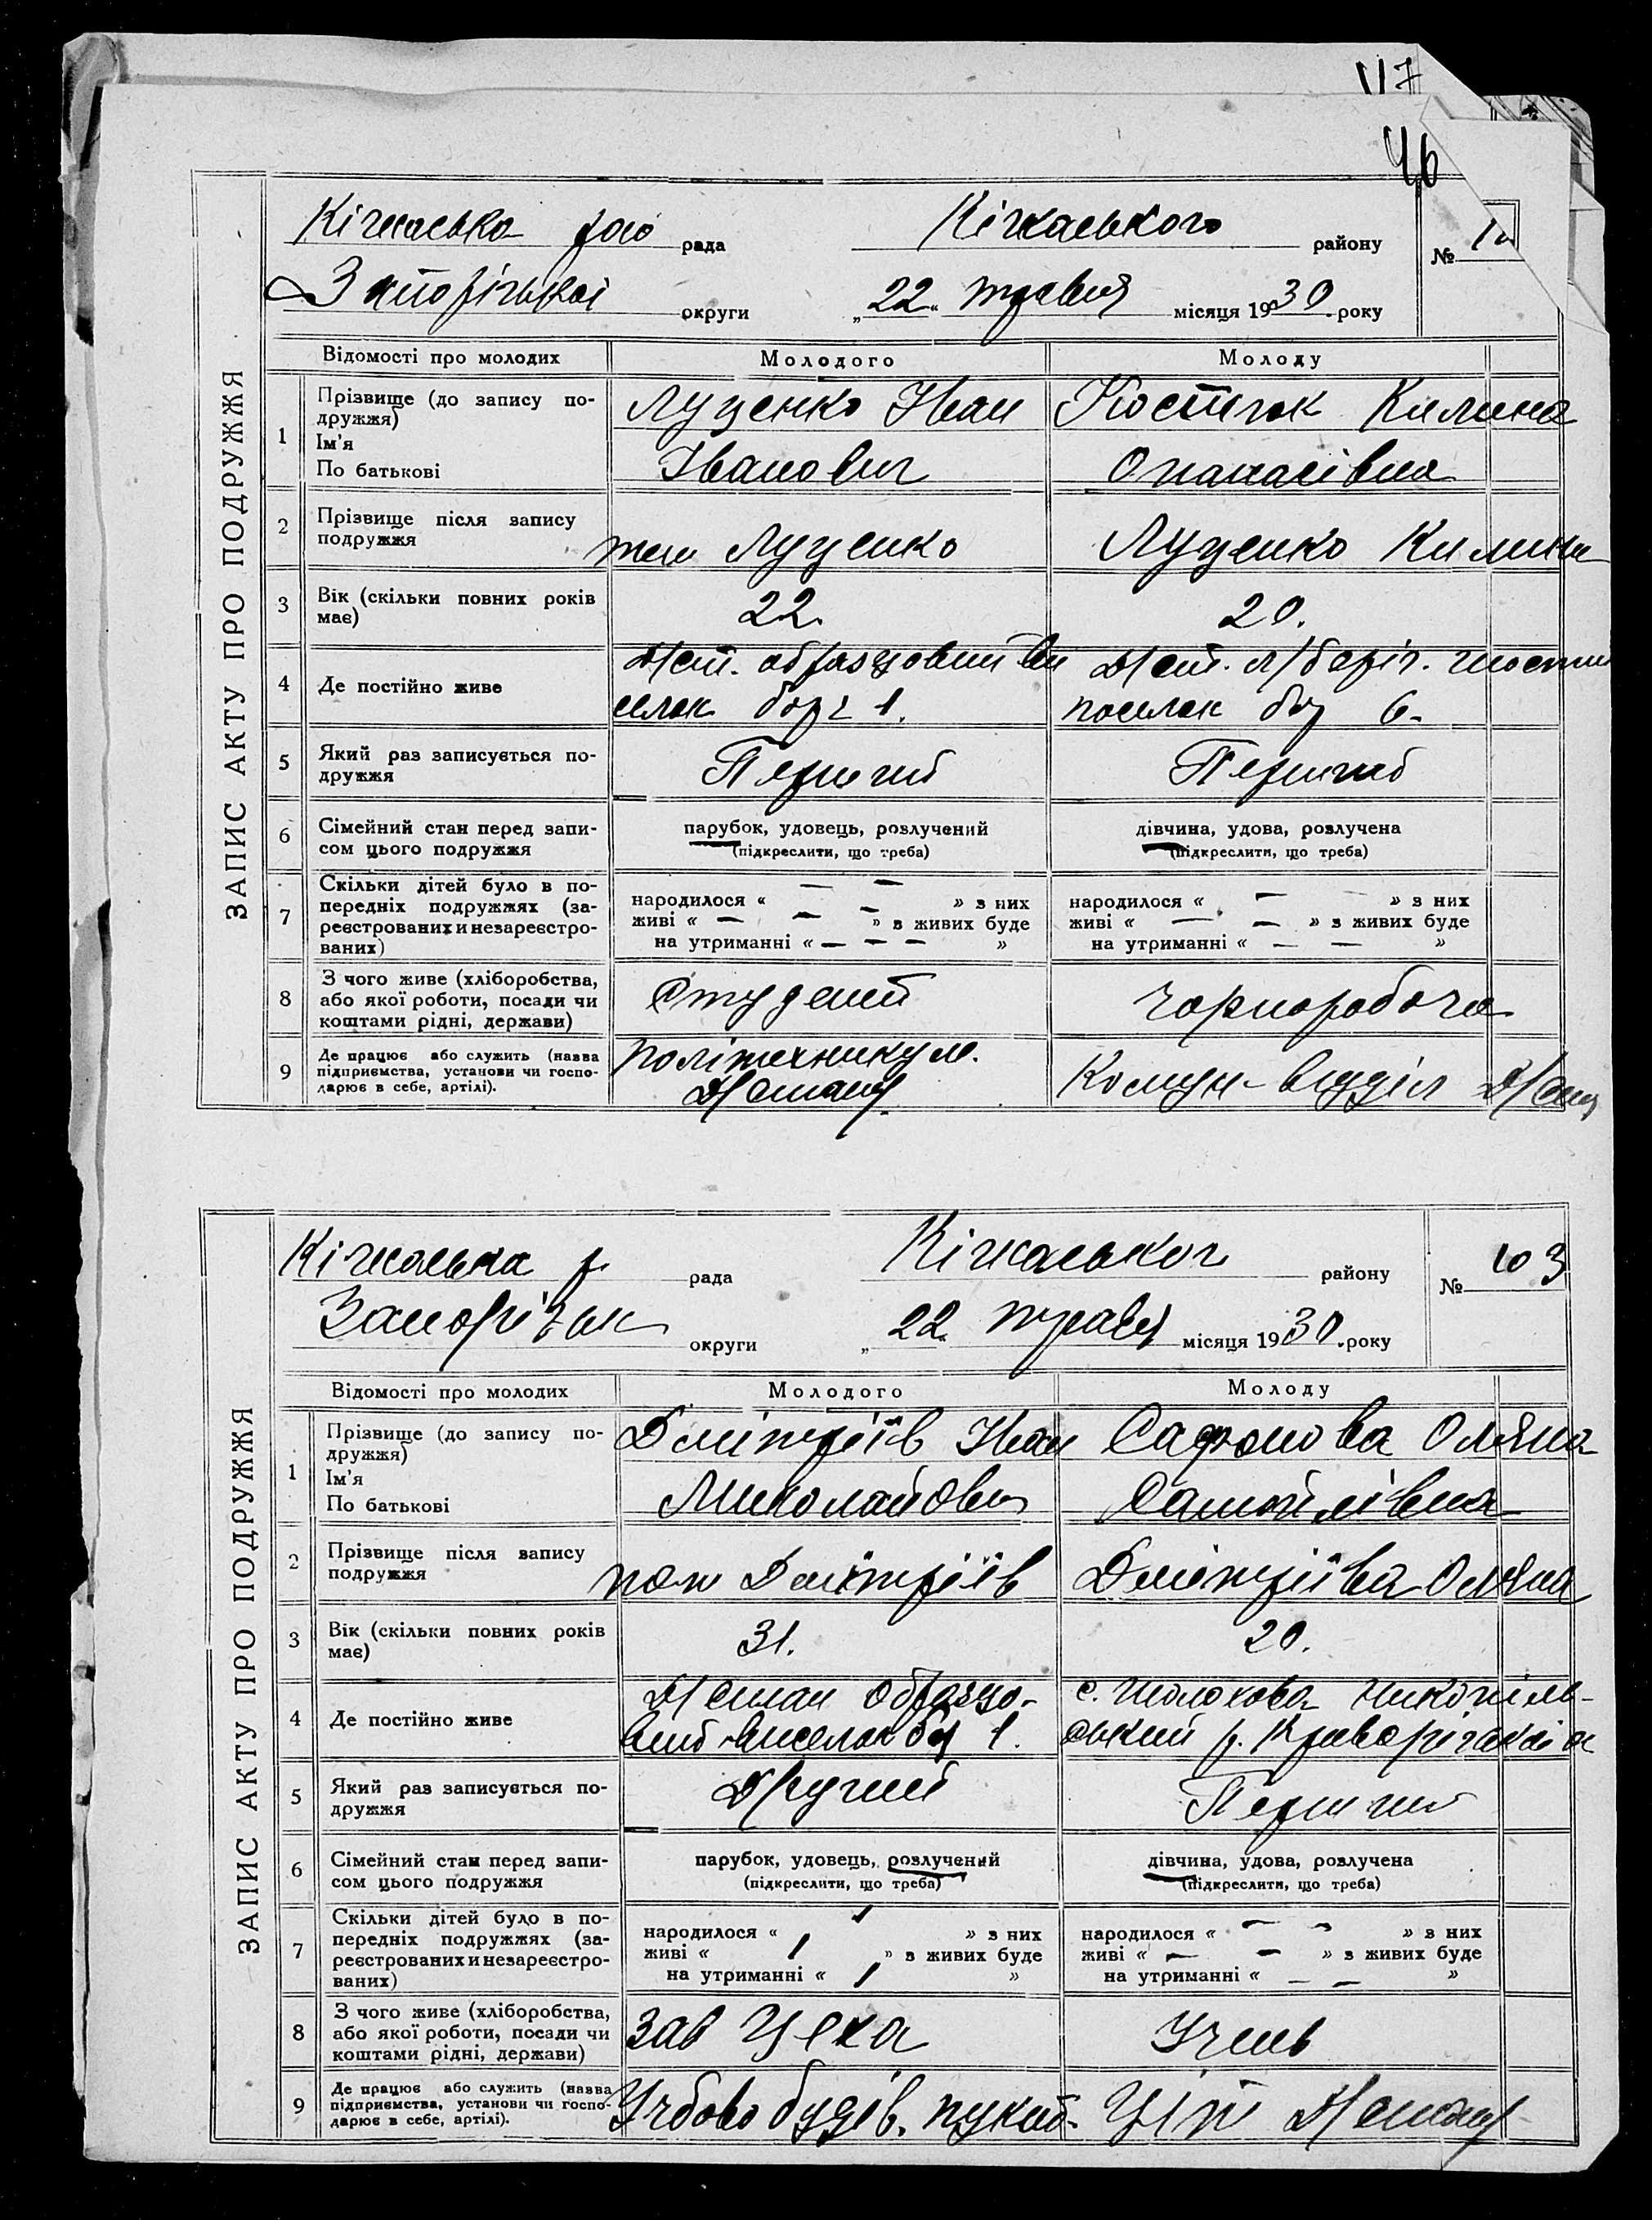 117
46
ЗАПИС АКТУ ПРО ПОДРУЖЖЯ
Кічкаська рада Кічкаського району №
Запорізької округи „22“ травня місяця 1930 року
Відомості про молодих Молодого Молоду
1 Прізвище (до запису по-
дружжя)
Ім'я
По батькові
Луценко Іван Костюк Килина
Іванович Опанасівна
2 Прізвище після запису
подружжя
Луценко Луценко Килина
3 Вік (скільки повних років
має)
22. 20.
4 Де постійно живе
Д/ст. образцовий ви Д/ст. л/беріг.
селак 1. поселак 6.
5 Який раз записується по-
дружжя
Перший Перший
6 Сімейний стан перед запи-
сом цього подружжя
парубок, удовець, розлучений дівчина, удова, розлучена
(підкреслити, що треба) (підкреслити, що треба)
7 Скільки дітей було в по-
передніх подружжях (за-
реєстрованих и незареєстро-
ваних)
народилося « — — » з них народилося « — — » з них
живі « — — » з живих буде живі « — — » з живих буде
на утриманні « — — — » на утриманні « — — »
8 З чого живе (хліборобства,
або якої роботи, посади чи
коштами рідні, держави)
Студент Чорноробоча
9 Де працює або служить (назва
підприємства, установи чи госпо-
дарює в себе, артілі).
Політехникум.
Д/стану Комун-відділ Д/стану
ЗАПИС АКТУ ПРО ПОДРУЖЖЯ
Кічкаська р. рада Кічкаського району № 103
Запорізьк округи „22. травня місяця 1930 року
Відомості про молодих Молодого Молоду
1 Прізвище (до запису по-
дружжя)
Ім'я
По батькові
Дмітріїв Іван Сафонова Оляна
Миколайович Самойлівна
2 Прізвище після запису
подружжя
Дмітріїв Дмітріїва Оляна
3 Вік (скільки повних років
має)
31. 20.
4 Де постійно живе
Д/стан Образцо- с. Шолохова Никопіль-
вий виселак 1. ський р. Криворізької ок
5 Який раз записується по-
дружжя
Другий Перший
6 Сімейний стан перед запи-
сом цього подружжя
парубок, удовець, розлучений дівчина, удова, розлучена
(підкреслити, що треба) (підкреслити, що треба)
7 Скільки дітей було в по-
передніх подружжях (за-
реєстрованих и незареєстро-
ваних)
народилося « 1 » з них народилося « — — » з них
живі « 1 » з живих буде живі « — — » з живих буде
на утриманні « 1 » на утриманні « — — »
8 З чого живе (хліборобства,
або якої роботи, посади чи
коштами рідні, держави)
Зав Цеха Учень
9 Де працює або служить (назва
підприємства, установи чи госпо-
дарює в себе, артілі).
Учбово будів. пункт. ЦІТ Д/стану